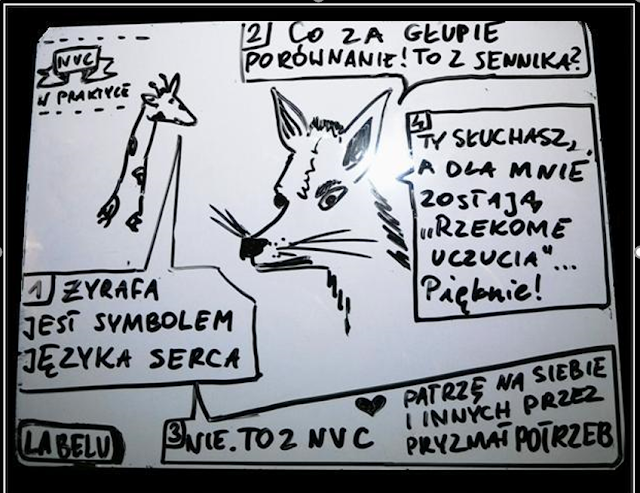 NVC
W PRAKTYCE
2 CO ZA GŁUPIE
PORÓWNANIE! TO Z SENNIKA?
4
TY SŁUCHASZ,
A DLA MNIE
ZOSTAJĄ
„RZEKOME
UCZUCIA"...
Pięknie!
1 ŻYRAFA
JEST SYMBOLEM
JĘZYKA SERCA
3 NIE. TO Z NVC
PATRZĘ NA SIEBIE
I INNYCH PRZEZ
PRYZMAT POTRZEB
LABELU